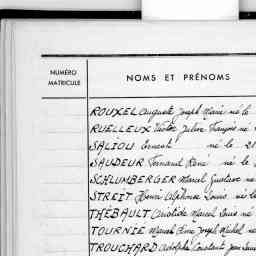 NUMÉRO
MATRICULE
NOMS ET PRÉNOMS
ROUXEL Auguste Joseph Marie né le
RUELLEUX Victor Julien François né
SALIOU Ernest né le 21
SAUDEUR Fernand René né le
SCHLUMBERGER Marcel Gustave né
STREIT Henri Alphonse Louis né le
THÉBAULT Aristide Marcel Louis né
TOURNIE Marcel René Joseph Michel né
TROUCHARD Adolphe Constant Jean Louis